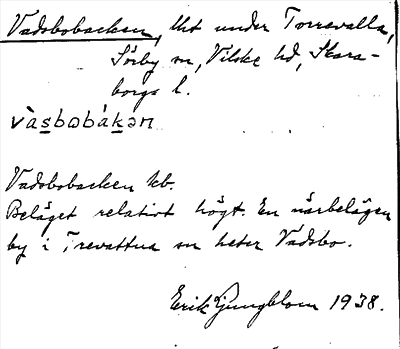 Vadsbobacken, lht under Torrevalla,
Sörby sn, Vilske hd, Skara-
borgs l.
vàsbobákən
Vadsbobacken kb.
Beläget relativt högt. En närbelägen
by i Trevattna sn heter Vadsbo.
Erik Ljungblom 1938.